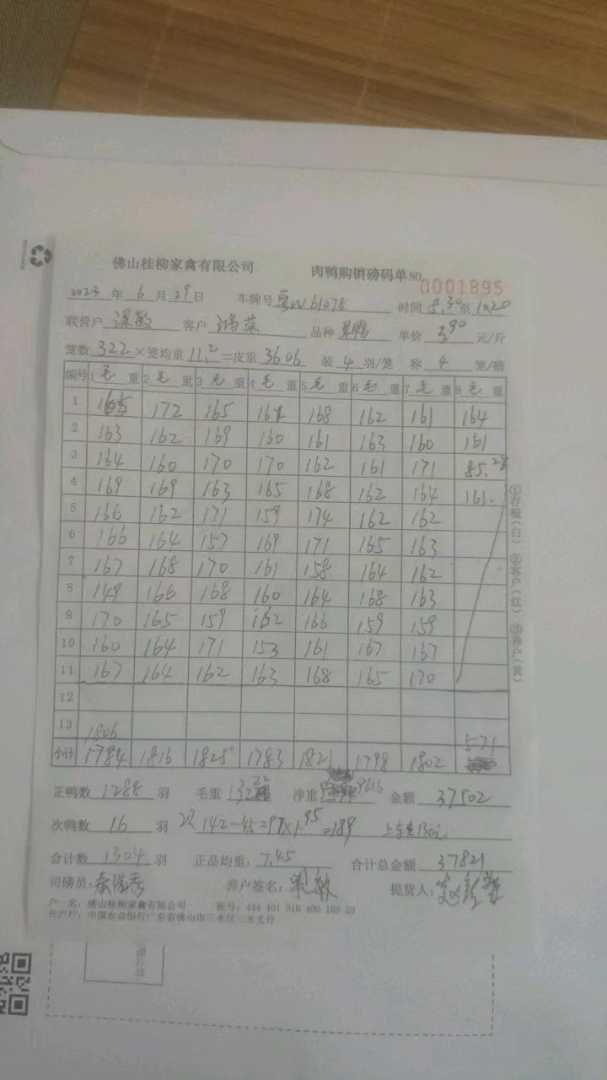 佛山桂柳家禽有限公司 肉鸭购销磅码单 NO 0001895
2023 年 6 月 29 日 车牌号 时间 8.30 至 10.20
联营户 客户 品种 单价 3.90 元/斤
笼数 322 × 笼均重 11.2 = 皮重 3606 装 4 羽/笼 称 4 笼/磅
编号 1 毛 重 2 毛 重 3 毛 重 4 毛 重 5 毛 重 6 毛 重 7 毛 重 8 毛 重
1 165 172 165 161 168 162 161 164
2 163 162 169 160 161 163 160 161
3 164 160 170 170 162 161 171 85.
4 169 169 163 165 168 162 164 161.
5 166 162 171 159 174 162 162
6 166 164 157 169 171 165 163
7 167 168 170 161 158 164 162
8 149 166 168 160 164 168 163
9 170 165 159 162 166 159 159
10 160 164 171 153 161 167 167
11 167 164 162 163 168 165 170
12
13
1806 571
小计 1784 1816 1825 1783 1821 1798 1802
正鸭数 1288 羽 毛重 净重 9616 金额 37502
次鸭数 16 羽 142-45=97×1.95=189
合计数 1304 羽 正品均重: 7.45 合计总金额 37821
司磅员: 客户签名: 提货人:
户 名: 佛山桂柳家禽有限公司 账号:
开户行: 中国农业银行广东省佛山市三水区三水支行